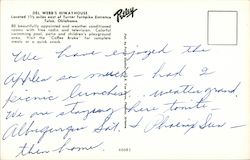 DEL WEBB'S HIWAYHOUSE
Located 1½ miles east of Turner Turnpike Entrance
Tulsa, Oklahoma.
80 beautifully appointed and weather conditioned
rooms with free radio and television. Colorful
swimming pool, patio and children's playground
area. Visit the "Coffee Brake" for complete
meals or a quick snack.
Roley
We have enjoyed the
apples so much - had 2
picnic lunches. weather grand
we are staying there tonite -
Albuquerque Sat. & Phoenix Sun -
then home.
66083